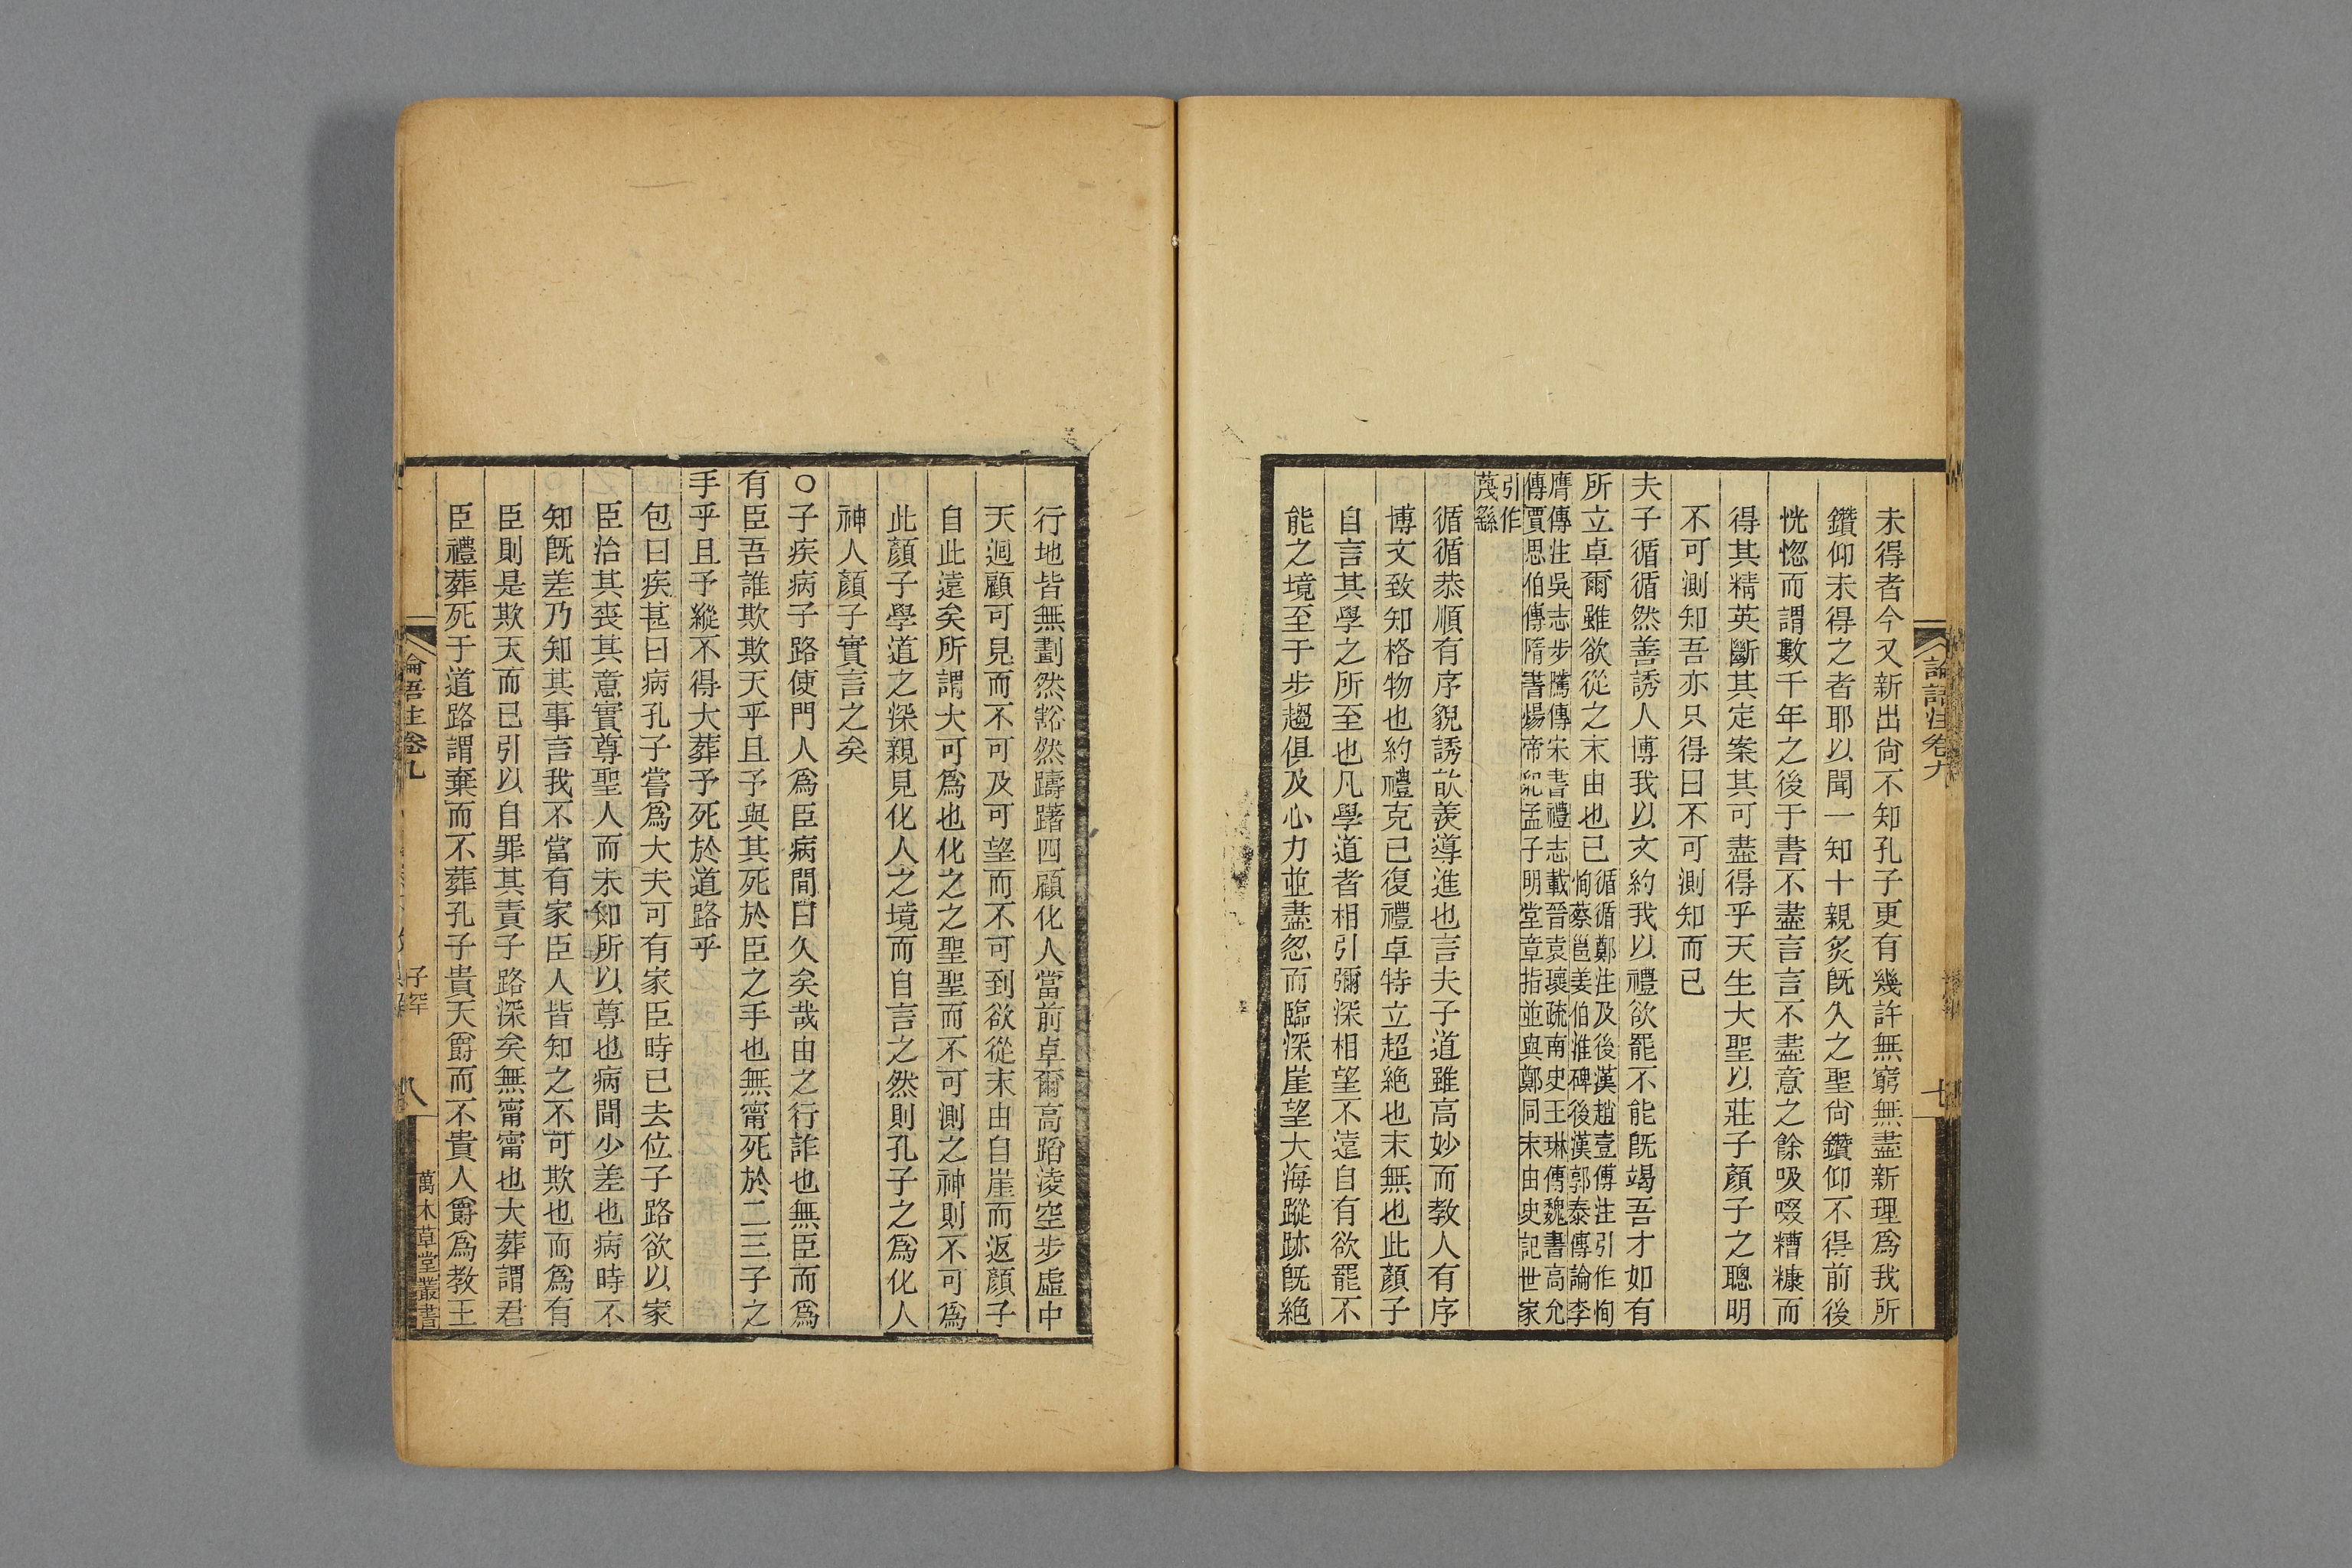 論語注卷九
七
未得者今又新出尙不知孔子更有幾許無窮無盡新理爲我所
鑽仰未得之者耶以聞一知十親炙旣久之聖尙鑽仰不得前後
恍惚而謂數千年之後于書不盡言言不盡意之餘吸啜糟糠而
得其精英斷其定案其可盡得乎天生大聖以莊子顏子之聰明
不可測知吾亦只得曰不可測知而已
夫子循循然善誘人博我以文約我以禮欲罷不能旣竭吾才如有
所立卓爾雖欲從之末由也已
循循鄭注及後漢趙壹傳注引作恂
恂蔡邕姜伯淮碑後漢郭泰傳論李
膺傳注吳志步騭傳宋書禮志載晉袁瓌疏南史王琳傳魏書高允
傳賈思伯傳隋書煬帝紀孟子明堂章指並與鄭同末由史記世家
引作
蔑繇
循循恭順有序貌誘歆羨導進也言夫子道雖高妙而敎人有序
博文致知格物也約禮克已復禮卓特立超絶也末無也此顏子
自言其學之所至也凡學道者相引彌深相望不遠自有欲罷不
能之境至于步趨俱及心力並盡忽而臨深崖望大海蹤跡旣絶
行地皆無劃然豁然躊躇四顧化人當前卓爾高蹈淩空步虛中
天迴顧可見而不可及可望而不可到欲從末由自崖而返顏子
自此遠矣所謂大可爲也化之之聖聖而不可測之神則不可爲
此顏子學道之深親見化人之境而自言之然則孔子之爲化人
神人顏子實言之矣
○子疾病子路使門人爲臣病閒曰久矣哉由之行詐也無臣而爲
有臣吾誰欺欺天乎且予與其死於臣之手也無甯死於二三子之
手乎且予縱不得大葬予死於道路乎
包曰疾甚曰病孔子嘗爲大夫可有家臣時已去位子路欲以家
臣治其喪其意實尊聖人而未知所以尊也病閒少差也病時不
知旣差乃知其事言我不當有家臣人皆知之不可欺也而爲有
臣則是欺天而已引以自罪其責子路深矣無甯甯也大葬謂君
臣禮葬死于道路謂棄而不葬孔子貴天爵而不貴人爵爲敎王
論語注卷九
子罕
八
萬木草堂叢書